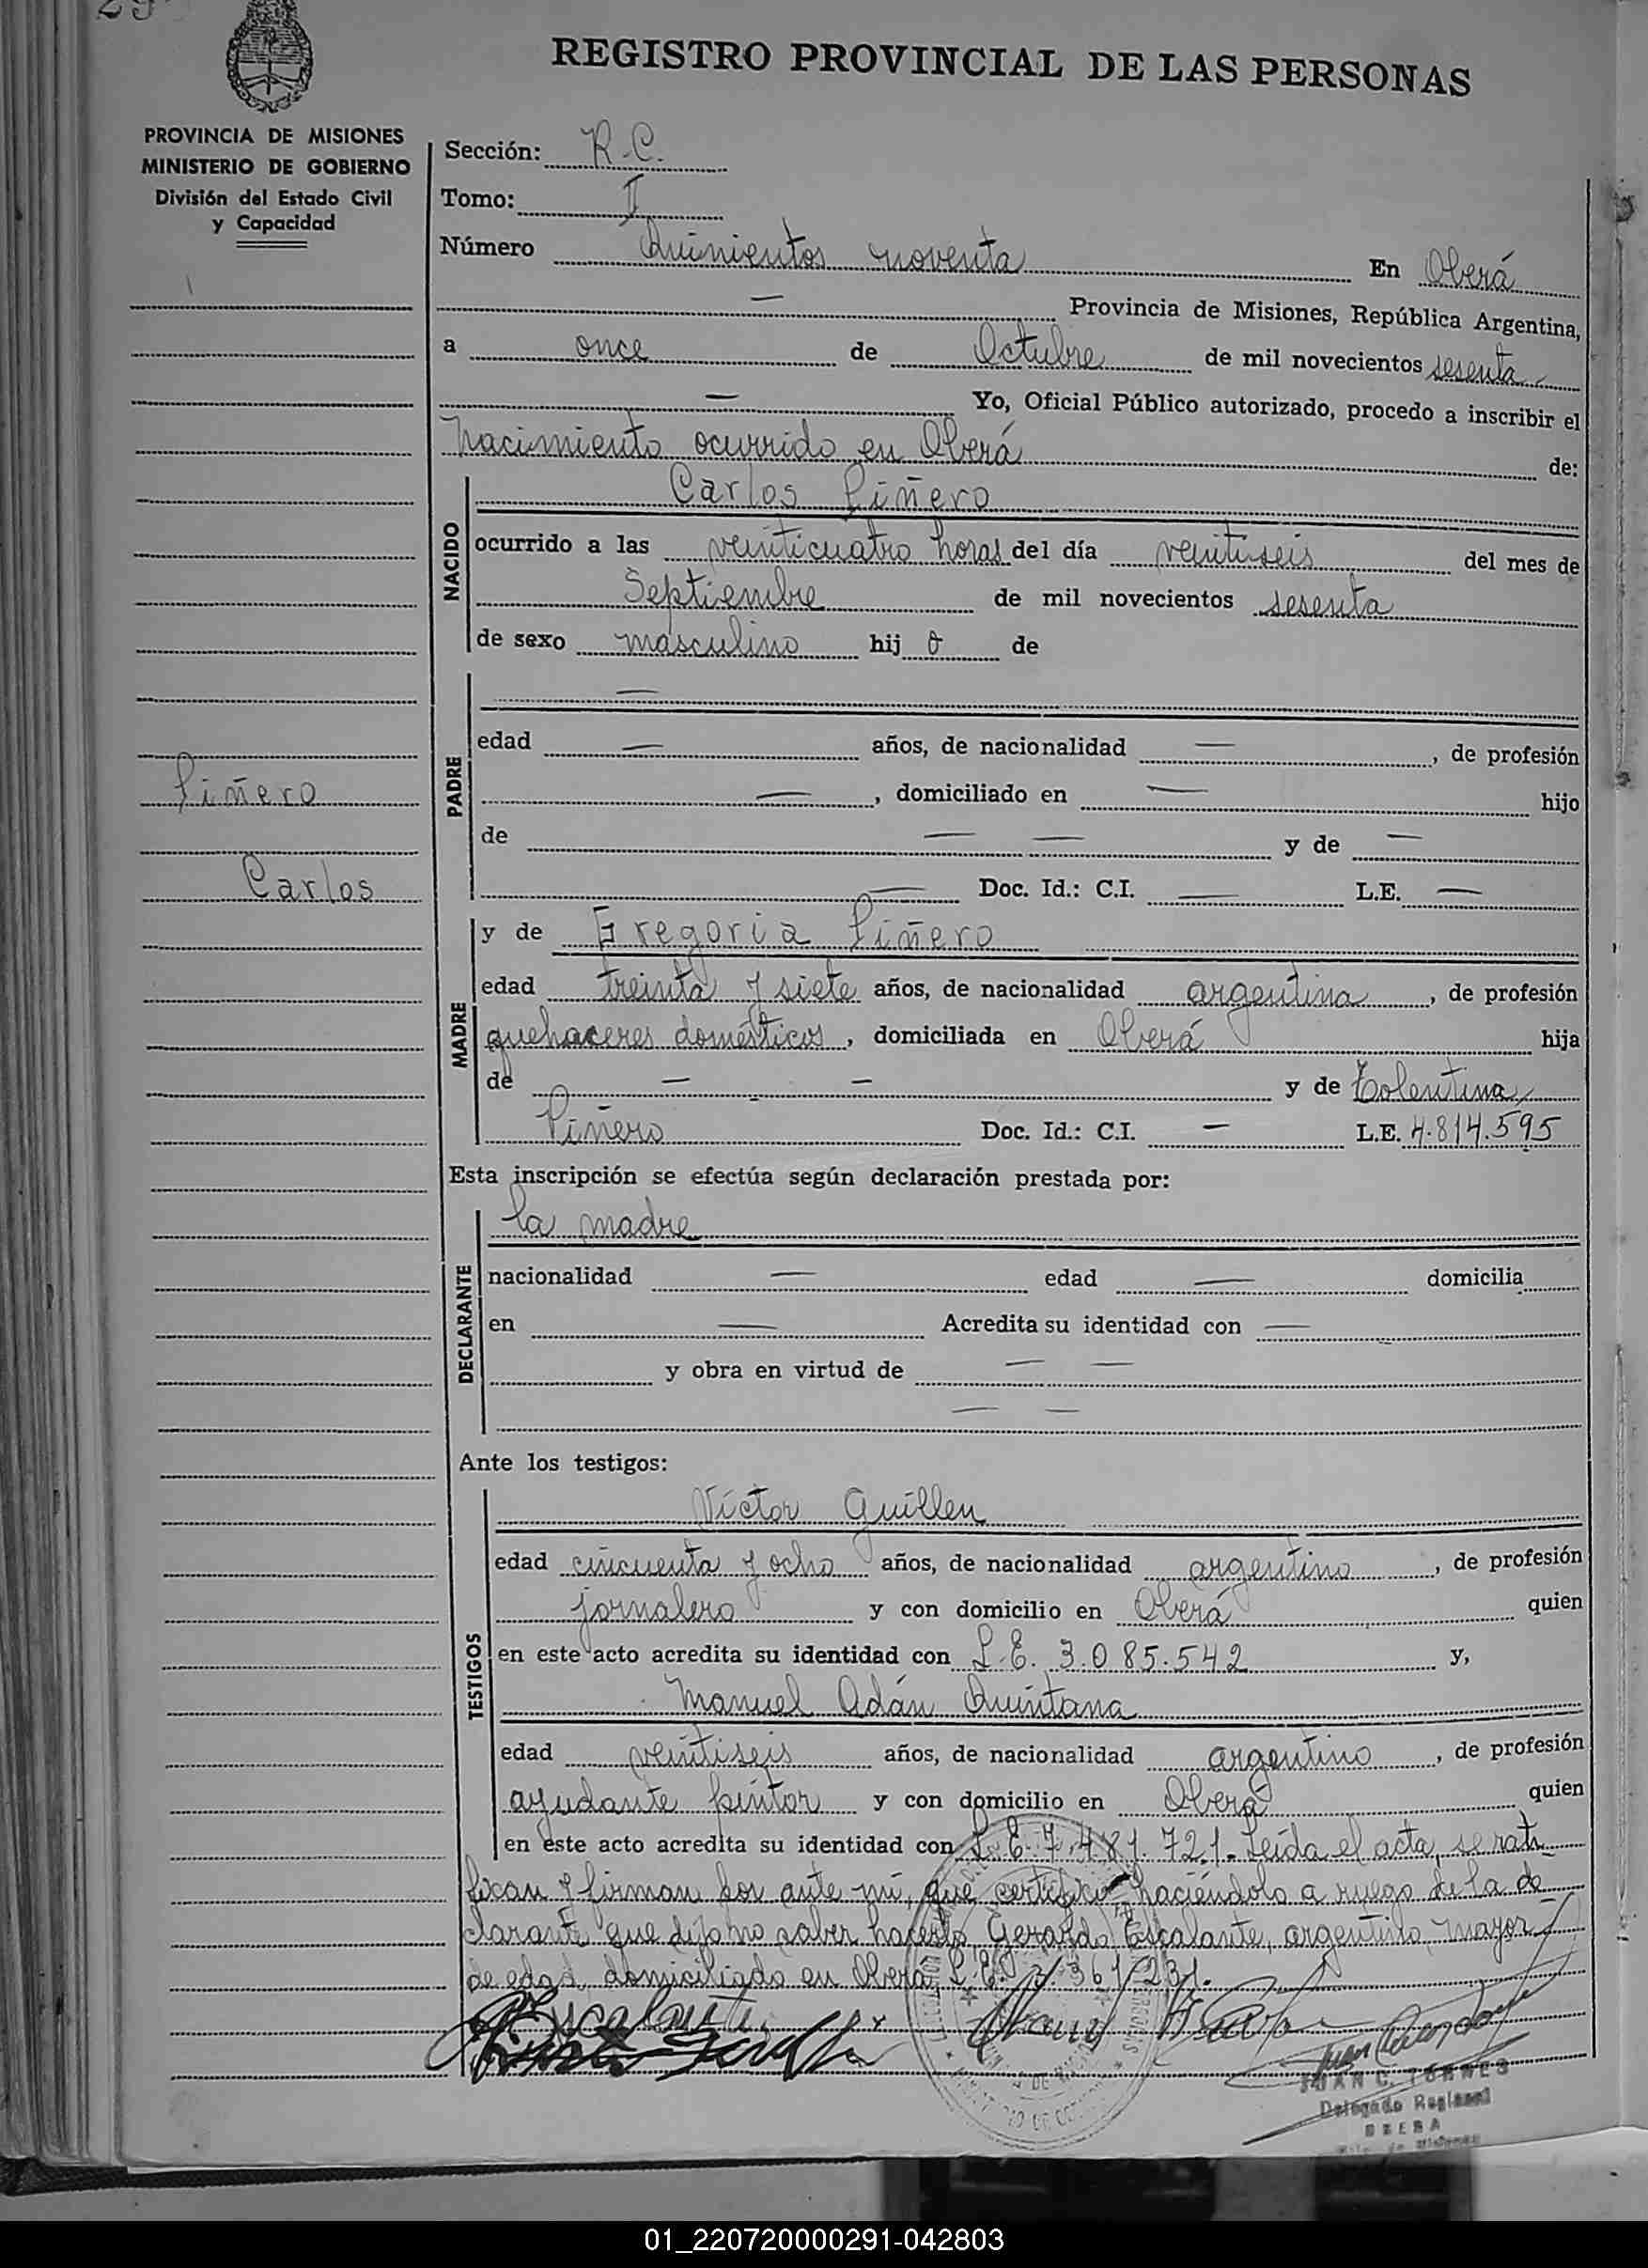 REGISTRO PROVINCIAL DE LAS PERSONAS
PROVINCIA DE MISIONES
MINISTERIO DE GOBIERNO
División del Estado Civil
y Capacidad
Sección: R.C.
Tomo: I
Número Quinientos noventa En Oberá
— Provincia de Misiones, República Argentina,
a once de Octubre de mil novecientos sesenta
— Yo, Oficial Público autorizado, procedo a inscribir el
nacimiento ocurrido en Oberá de:
NACIDO
Carlos Piñero
ocurrido a las veinticuatro horas del día veintiseis del mes de
Septiembre de mil novecientos sesenta
de sexo masculino hij o de
PADRE
—
edad — años, de nacionalidad —, de profesión
—, domiciliado en — hijo
de — — y de —
— Doc. Id.: C.I. — L.E. —
Piñero
Carlos
MADRE
y de Gregoria Piñero
edad treinta y siete años, de nacionalidad argentina, de profesión
quehaceres domésticos, domiciliada en Oberá hija
de — — y de Tolentina
Piñero Doc. Id.: C.I. — L.E. 4.814.595
Esta inscripción se efectúa según declaración prestada por:
DECLARANTE
la madre
nacionalidad — edad — domicilia
en — Acredita su identidad con —
y obra en virtud de — —
— —
Ante los testigos:
TESTIGOS
Víctor Guillen
edad cincuenta y ocho años, de nacionalidad argentino, de profesión
jornalero y con domicilio en Oberá quien
en este acto acredita su identidad con L.E. 3.085.542 y,
Manuel Adán Quintana
edad veintiseis años, de nacionalidad argentino, de profesión
ayudante pintor y con domicilio en Oberá quien
en este acto acredita su identidad con L.E. 7.481.721. Leída el acta, se rati
fican y firman por ante mí, que certifico haciéndolo a ruego de la de
clarante que dijo no saber hacerlo, Gerardo Escalante, argentino, mayor
de edad, domiciliado en Oberá L.E.
Escalante
JUAN C. TORRES
Delegado Regional
OBERA
01_220720000291-042803